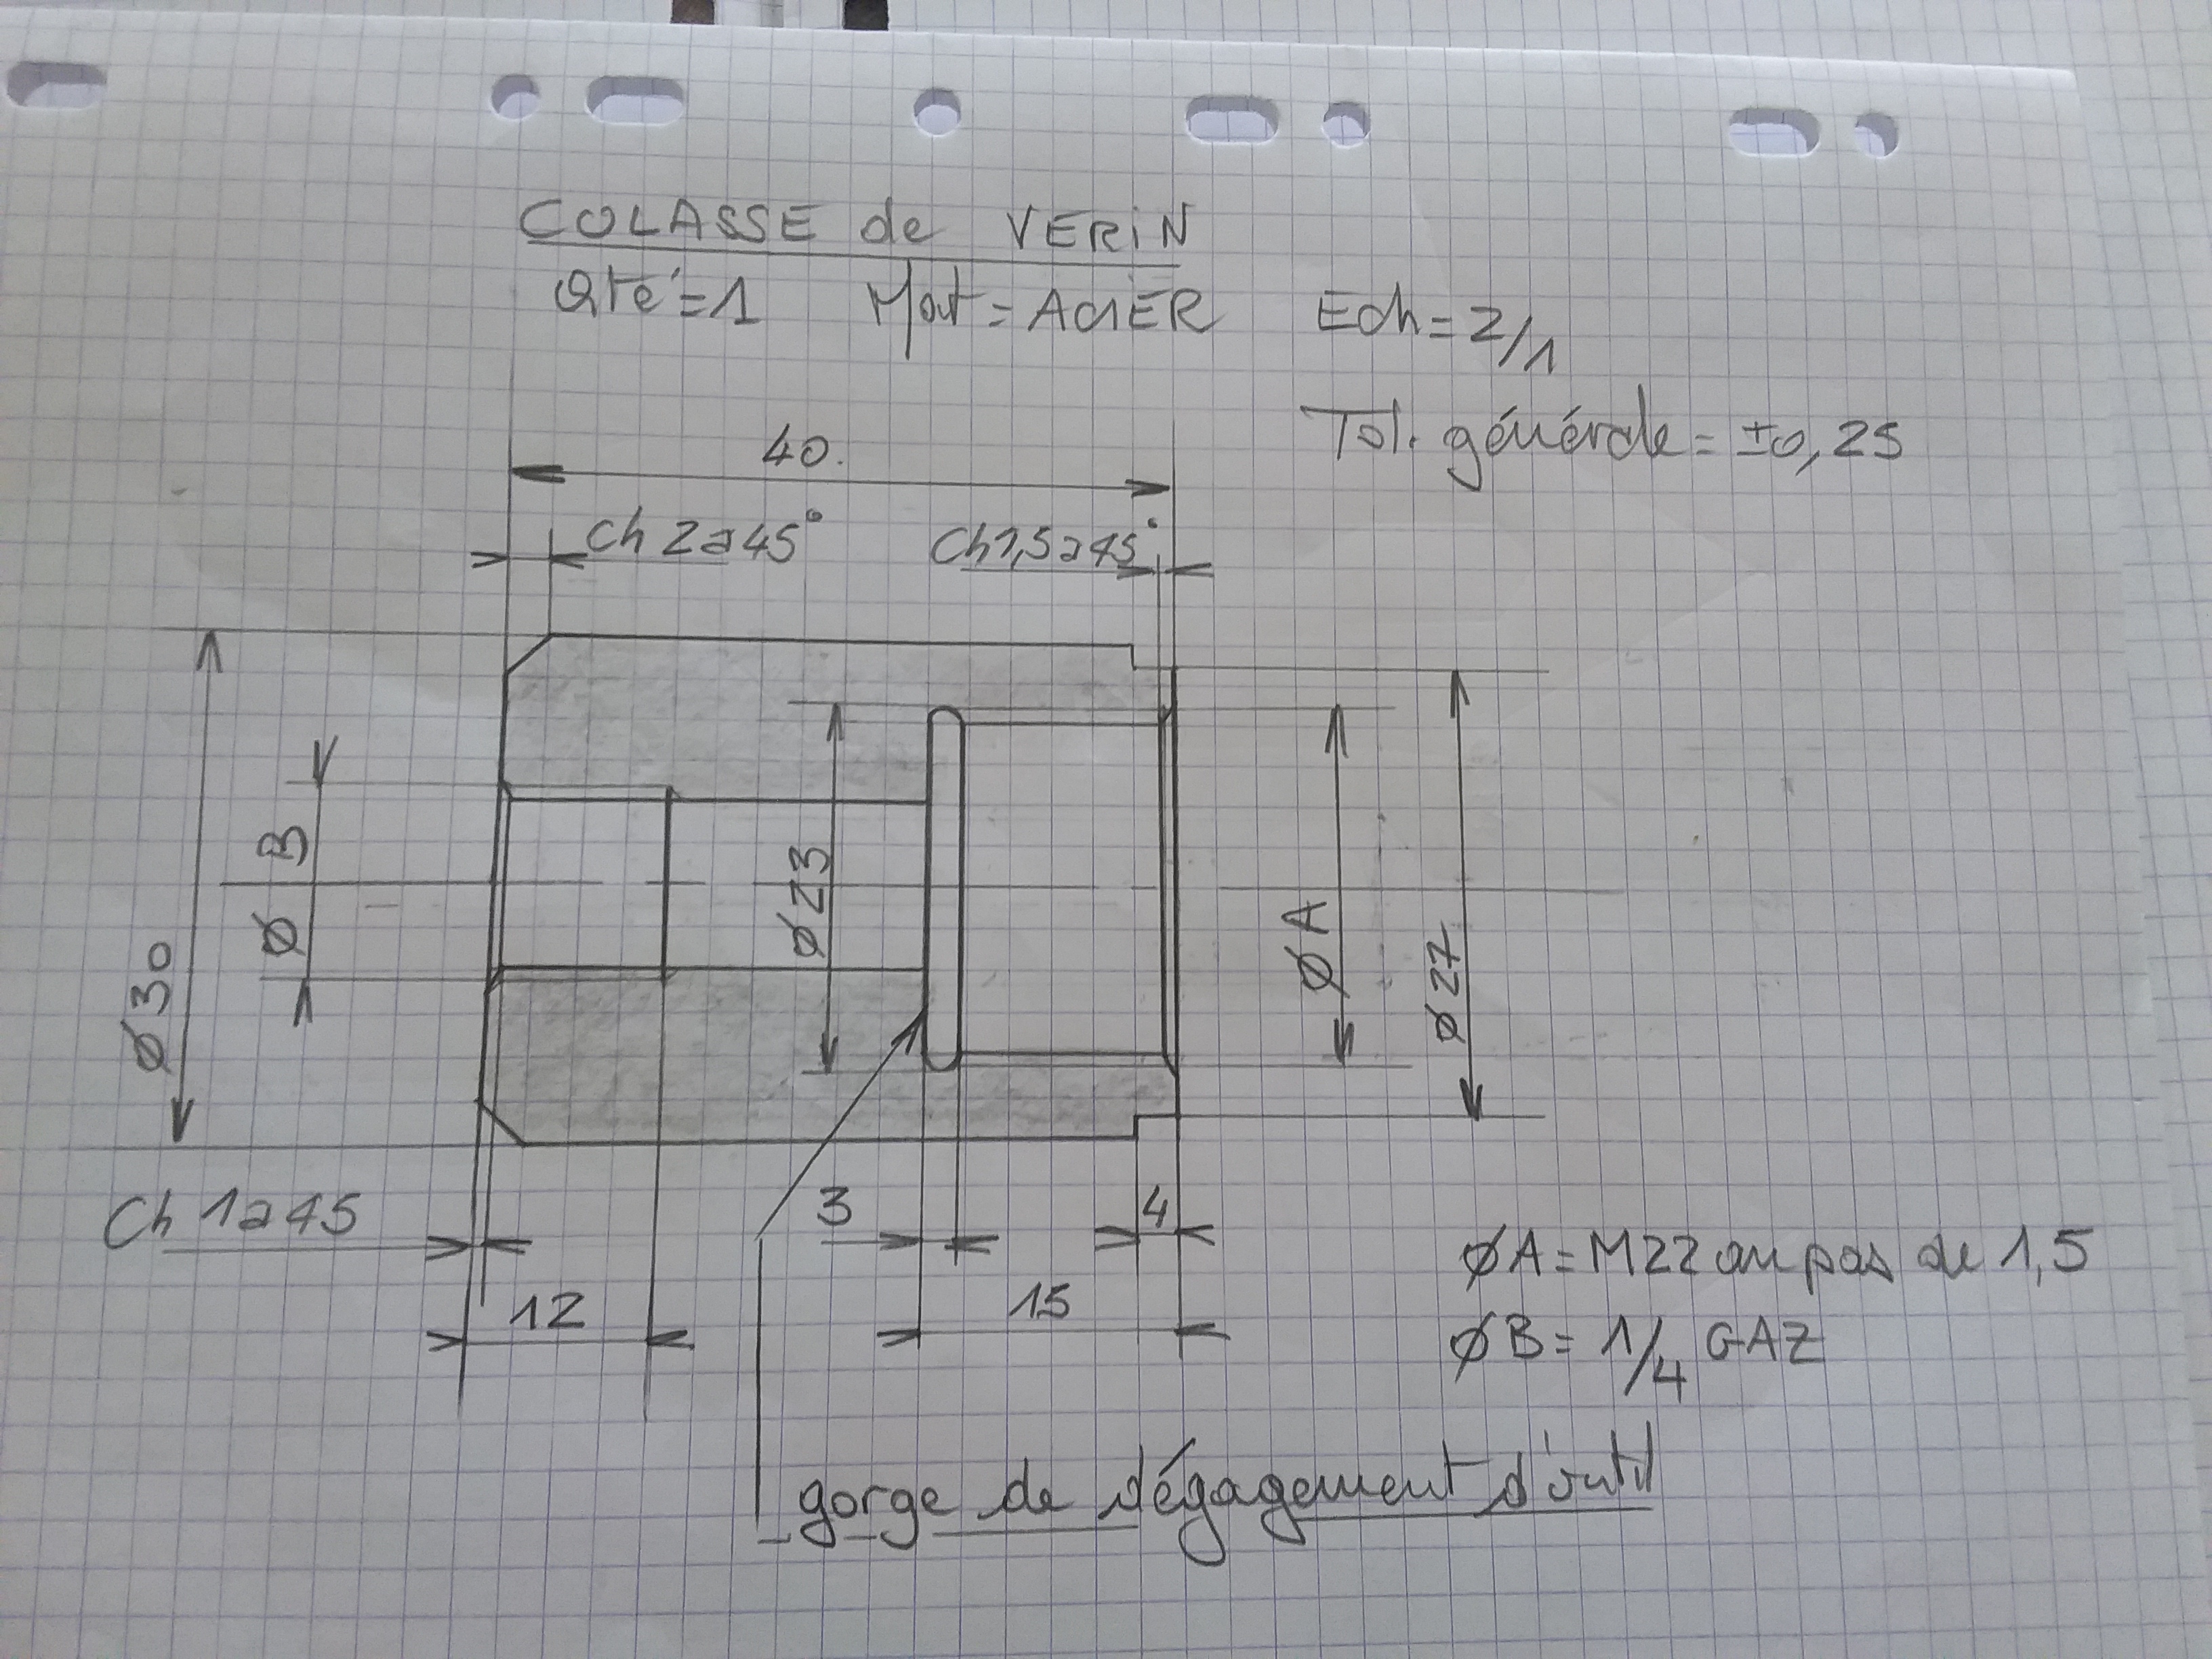 COLASSE de VERiN
Qté=1 Mat=ACIER Ech=2/1
Tol. générale=±0,25
40.
Ch 2à45° Ch1,5à45°
Ø30
Ø B
Ø23
Ø A
Ø27
Ch 1à45
3
4
12
15
ØA=M22 au pas de 1,5
ØB=1/4 GAZ
gorge de dégagement d'outil